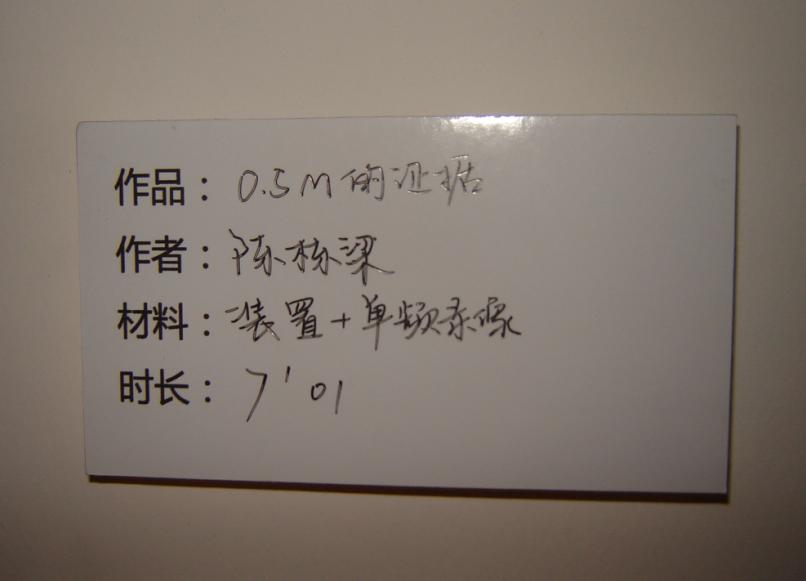 作品：0.5M的证据
作者：陈栋梁
材料：装置+单频录像
时长：7'01